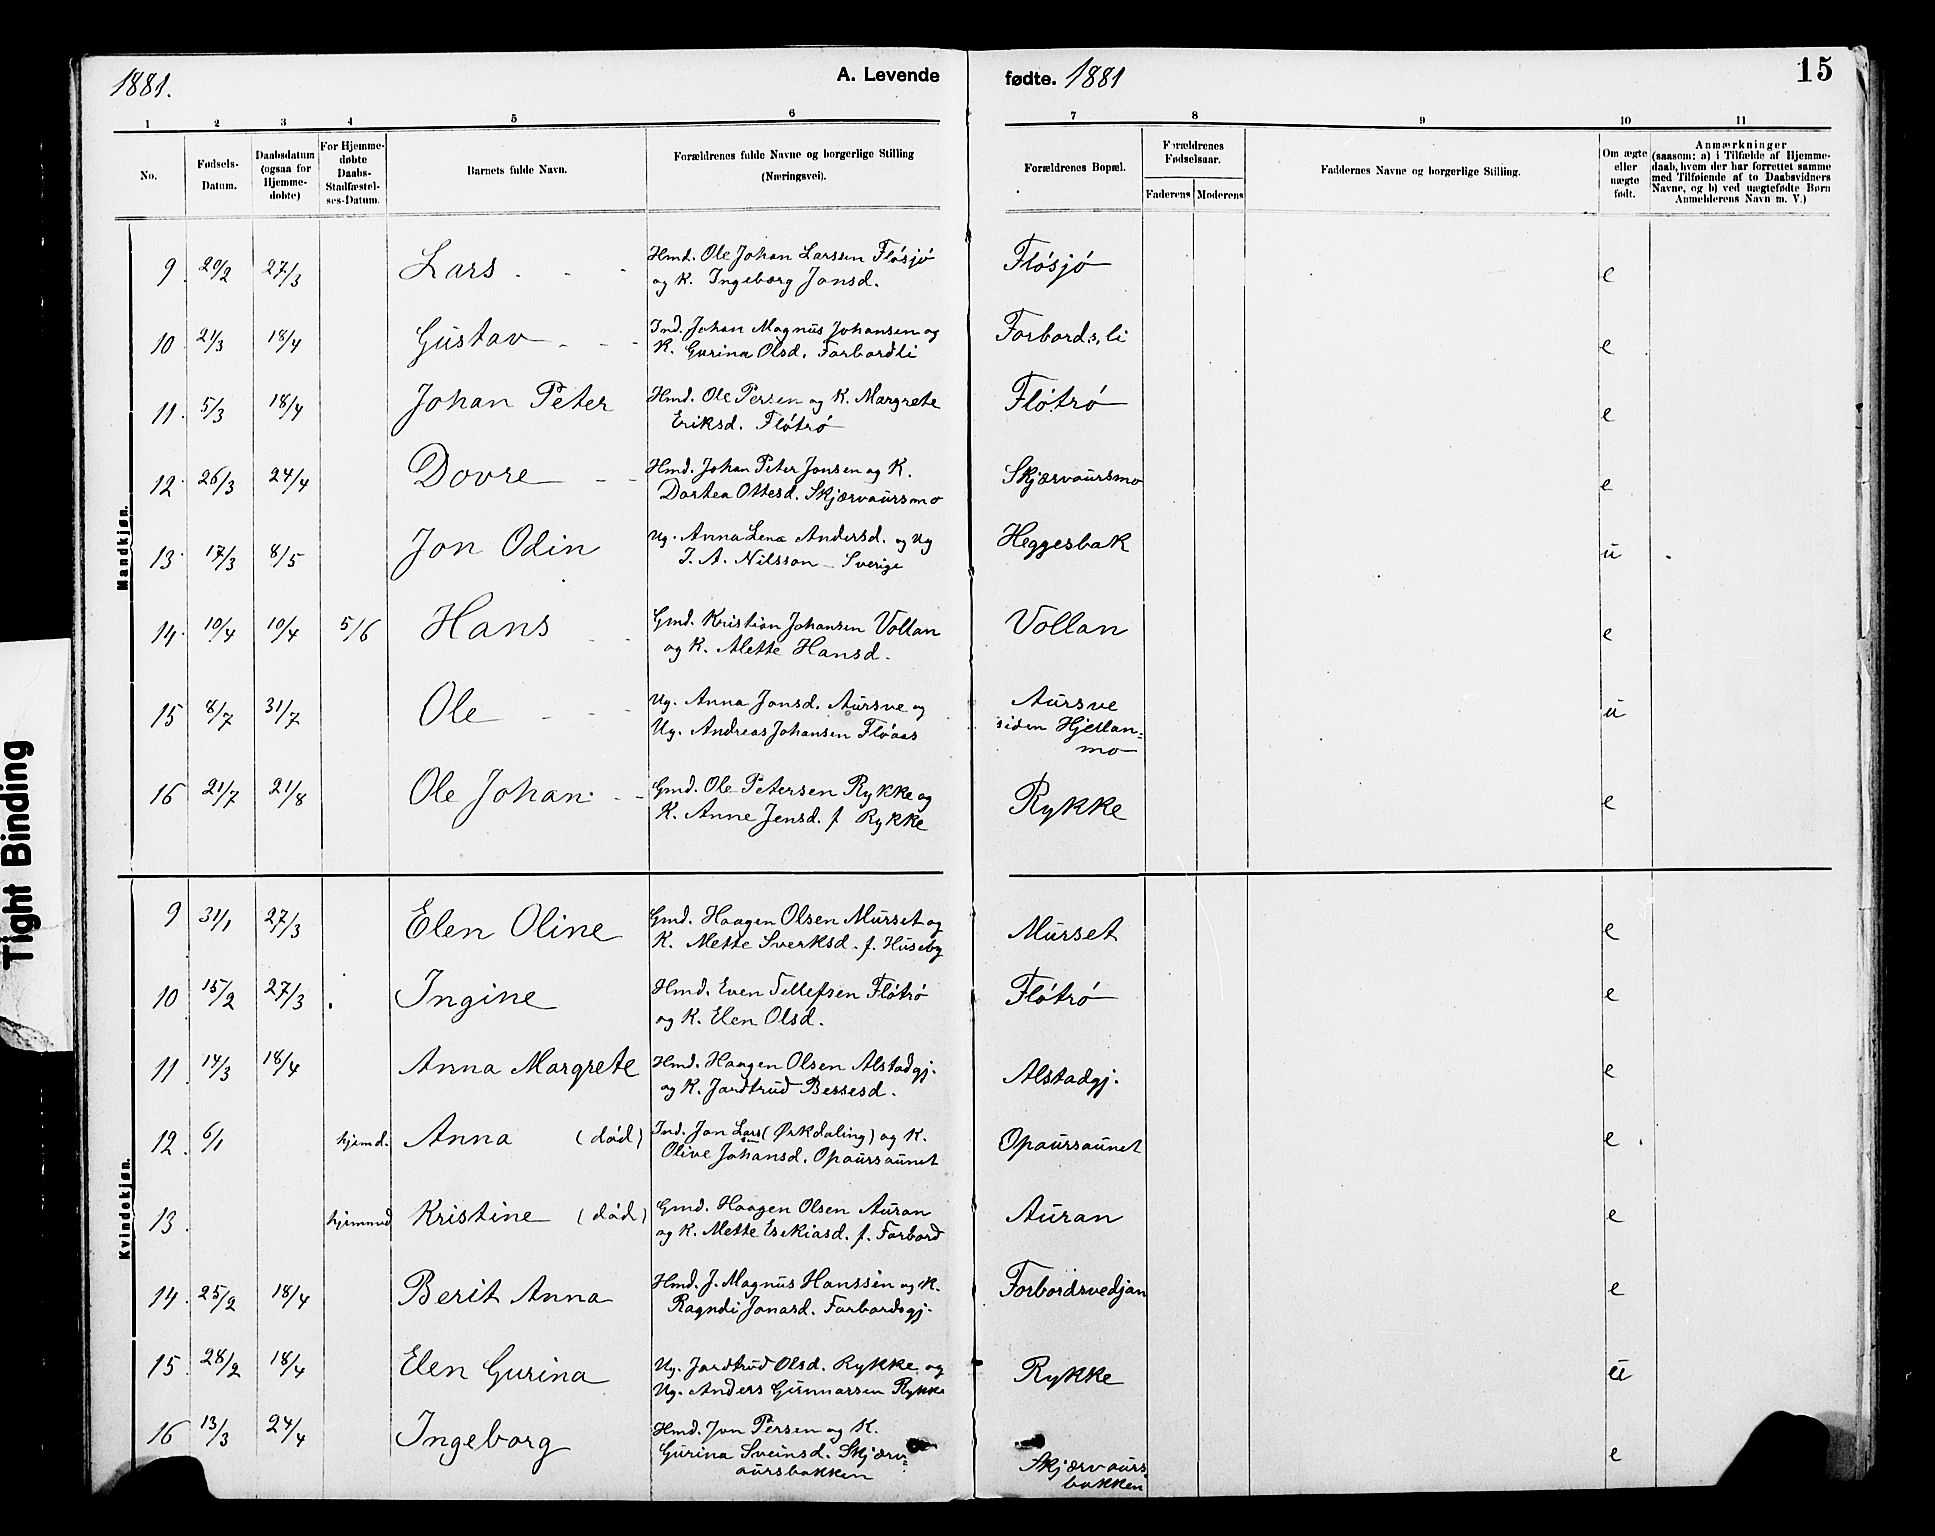 1881.
A. Levende
fødte. 1881
15
1 2 3 4 5 6 7 8 9 10 11
No.
Fødsels-
Datum.
Daabsdatum
(ogsaa for
Hjemme-
døbte)
For Hjemme-
døbte
Daabs-
Stadfæstel-
ses-Datum.
Barnets fulde Navn.
Forældrenes fulde Navne og borgerlige Stilling
(Næringsvei).
Forældrenes Bopæl.
Forældrenes
Fødselsaar.
Faderens Moderens
Faddernes Navne og borgerlige Stilling.
Om ægte
eller
uægte
født.
Anmærkninger
(saasom: a) i Tilfælde af Hjemme-
daab, hvem der har forrettet samme
med Tilføiende af to Daabsvidners
Navne, og b) ved uægtefødte Børn
Anmelderens Navn m. V.)
Mandkjøn.
9. 20/2 27/3 Lars - - - Hmd. Ole Johan Larssen Fløsjø Fløsjø e
og K. Ingeborg Jonsd.
10. 21/3 18/4 Gustav - - - Ind. Johan Magnus Johansen og Forbords.li e
K. Gurina Olsd. Forbordli
11. 5/3 18/4 Johan Peter Hmd. Ole Persen og K. Margrete Fløtrø e
Eriksd. Fløtrø
12. 26/3 24/4 Dovre - - Hmd. Johan Peter Jonsen og K. Skjærvaursmo e
Dortea Ottesd. Skjærvaursmo
13. 17/3 8/5 Jon Odin Ug. Anna Lena Andersd. og Ug Heggesbak u
J. A. Nilsson - Sverige
14. 10/4 10/4 5/6 Hans - - Gmd. Kristian Johansen Vollan Vollan e
og K. Alette Hansd.
15 8/7 31/7 Ole - - - Ug. Anna Jonsd. Aursve og Aursve u
Ug. Andreas Johansen Fløaas siden Hjellan=
mo
16 21/7 21/8 Ole Johan - - Gmd. Ole Petersen Rykke og Rykke e
K. Anne Jensd. f. Rykke
Kvindekjøn.
9 31/1 27/3 Elen Oline Gmd. Haagen Olsen Murset og Murset e
K. Mette Sverksd. f. Huseby
10 15/2 27/3 Ingine Hmd. Even Tellefsen Fløtrø Fløtrø e
og K. Elen Olsd.
11. 14/3 18/4 Anna Margrete Hmd. Haagen Olsen Alstadgj. Alstadgj. e
og K. Jardtrud Bessesd.
12. 6/1 hjemd. Anna (død) Ind. Jon Lars (Ørkdaling) og K. Opaursaunet e
Olive Johansd. Opaursaunet
13. hjemmed Kristine (død) Gmd. Haagen Olsen Auran Auran e
og K. Mette Esekiasd. f. Forbord
14. 25/2 18/4 Berit Anna Hmd. J. Magnus Hanssen og K. Forbordsvedjan e
Ragndi Jonasd. Forbordsgj.
15. 28/2 18/4 Elen Gurina Ug. Jardtrud Olsd. Rykke og Rykke u
Ug. Anders Gunnarssen Rykke
16 13/3 24/4 Ingeborg Hmd. Jon Persen og K. Skjærvaurs e
Gurina Sveinsd. Skjærv= bakken
aursbakken
Tight Binding